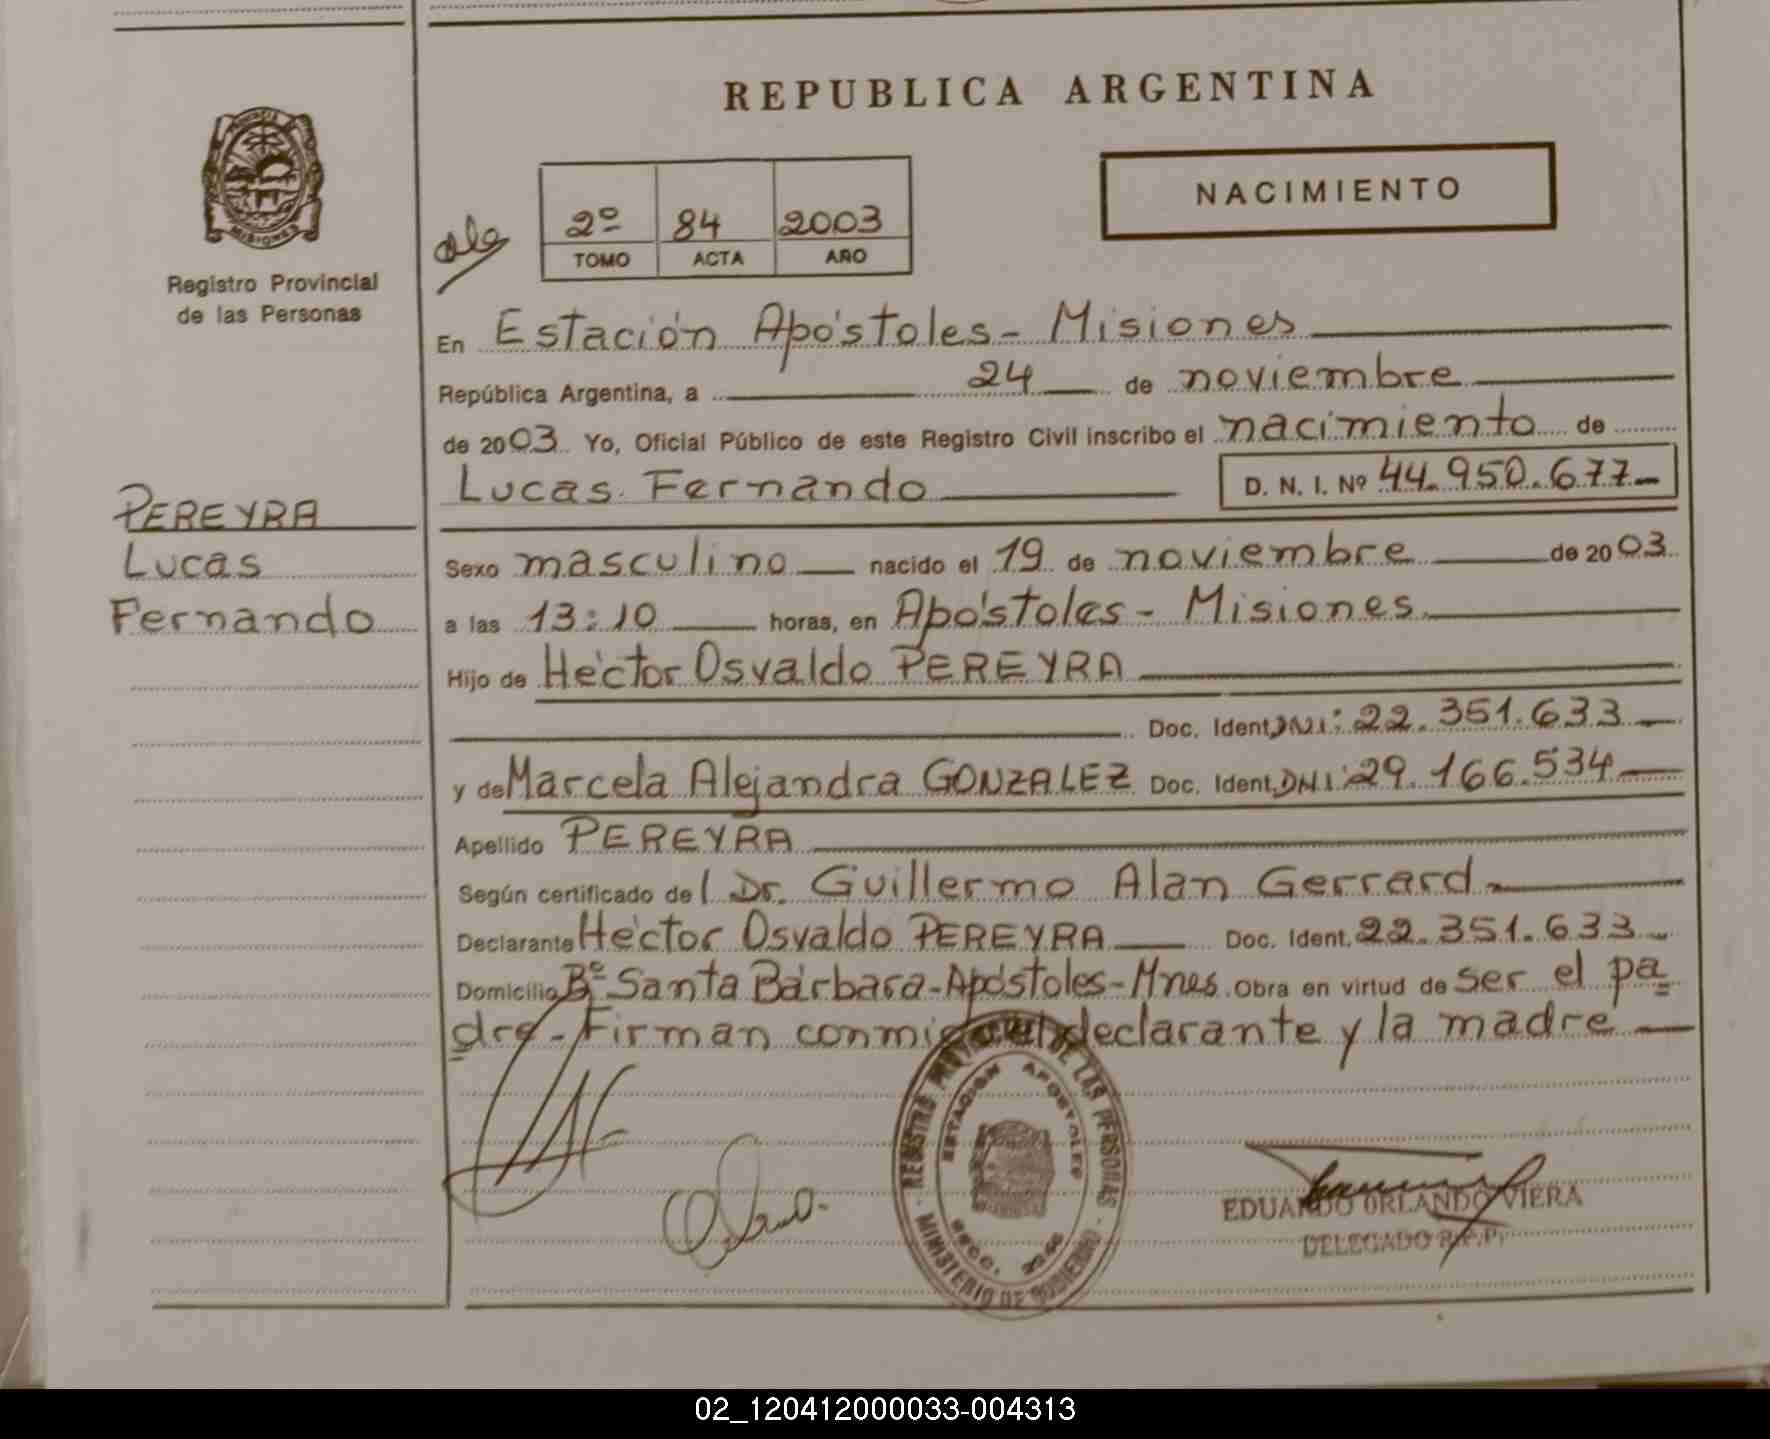 REPUBLICA ARGENTINA
NACIMIENTO
2º 84 2003
TOMO ACTA AÑO
PROVINCIA
MISIONES
Registro Provincial
de las Personas
En Estación Apóstoles - Misiones
República Argentina, a 24 de noviembre
de 2003. Yo, Oficial Público de este Registro Civil inscribo el nacimiento de
Lucas Fernando D. N. I. Nº 44.950.677-
PEREYRA
Lucas
Fernando
Sexo masculino nacido el 19 de noviembre de 2003
a las 13:10 horas, en Apóstoles - Misiones
Hijo de Héctor Osvaldo PEREYRA
Doc. Ident. DNI: 22.351.633
y de Marcela Alejandra GONZALEZ Doc. Ident. DNI: 29.166.534
Apellido PEREYRA
Según certificado del Dr. Guillermo Alan Gerrard
Declarante Héctor Osvaldo PEREYRA Doc. Ident. 22.351.633
Domicilio Bº Santa Bárbara - Apóstoles - Mnes. Obra en virtud de ser el pa
dre - Firman conmigo el declarante y la madre
REGISTRO PROVINCIAL DE LAS PERSONAS
ESTACION APOSTOLES
MINISTERIO DE GOBIERNO
EDUARDO ORLANDO VIERA
DELEGADO R.P.P.
02_120412000033-004313